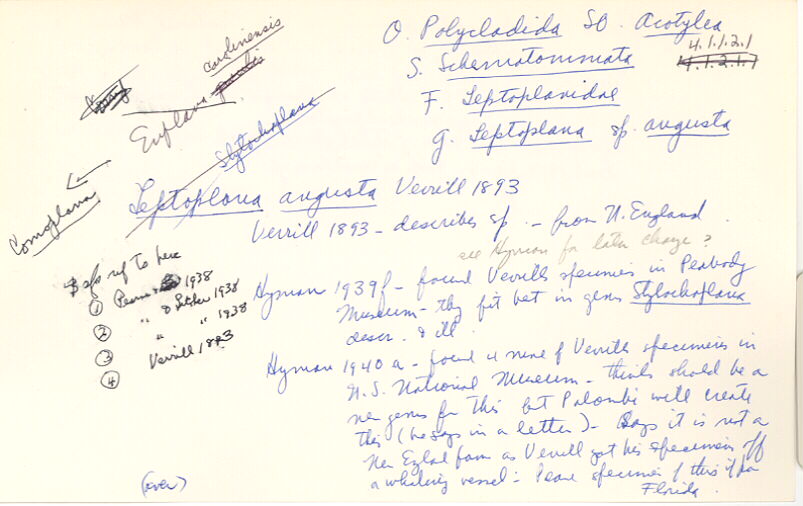 O. Polycladida SO. Acotylea
4.1.1.2.1
4.1.2.1.1
S. Schematommata
F. Leptoplanidae
G. Leptoplana sp. angusta
carolinensis
Euplana
Stylochoplana
Comoplana
Leptoplana angusta Verrill 1893
Verrill 1893 - describes sp. - from N. England
see Hyman for later change?
ref to here
① Pearse 1938
② " & Luther 1938
③ " " 1938
④ Verrill 1893
Hyman 1939f - found Verrills specimens in Peabody
Museum - they fit best in genus Stylochoplana
descr. & ill.
Hyman 1940a - found 4 more of Verrills specimens in
U.S. National Museum - thinks should be a
new genus for this but Palombi will create
this (he says in a letter). Says it is not a
New Eglad form as Verrill got his specimens off
a whaling vessel - Pearse specimens of this is from
Florida.
(over)